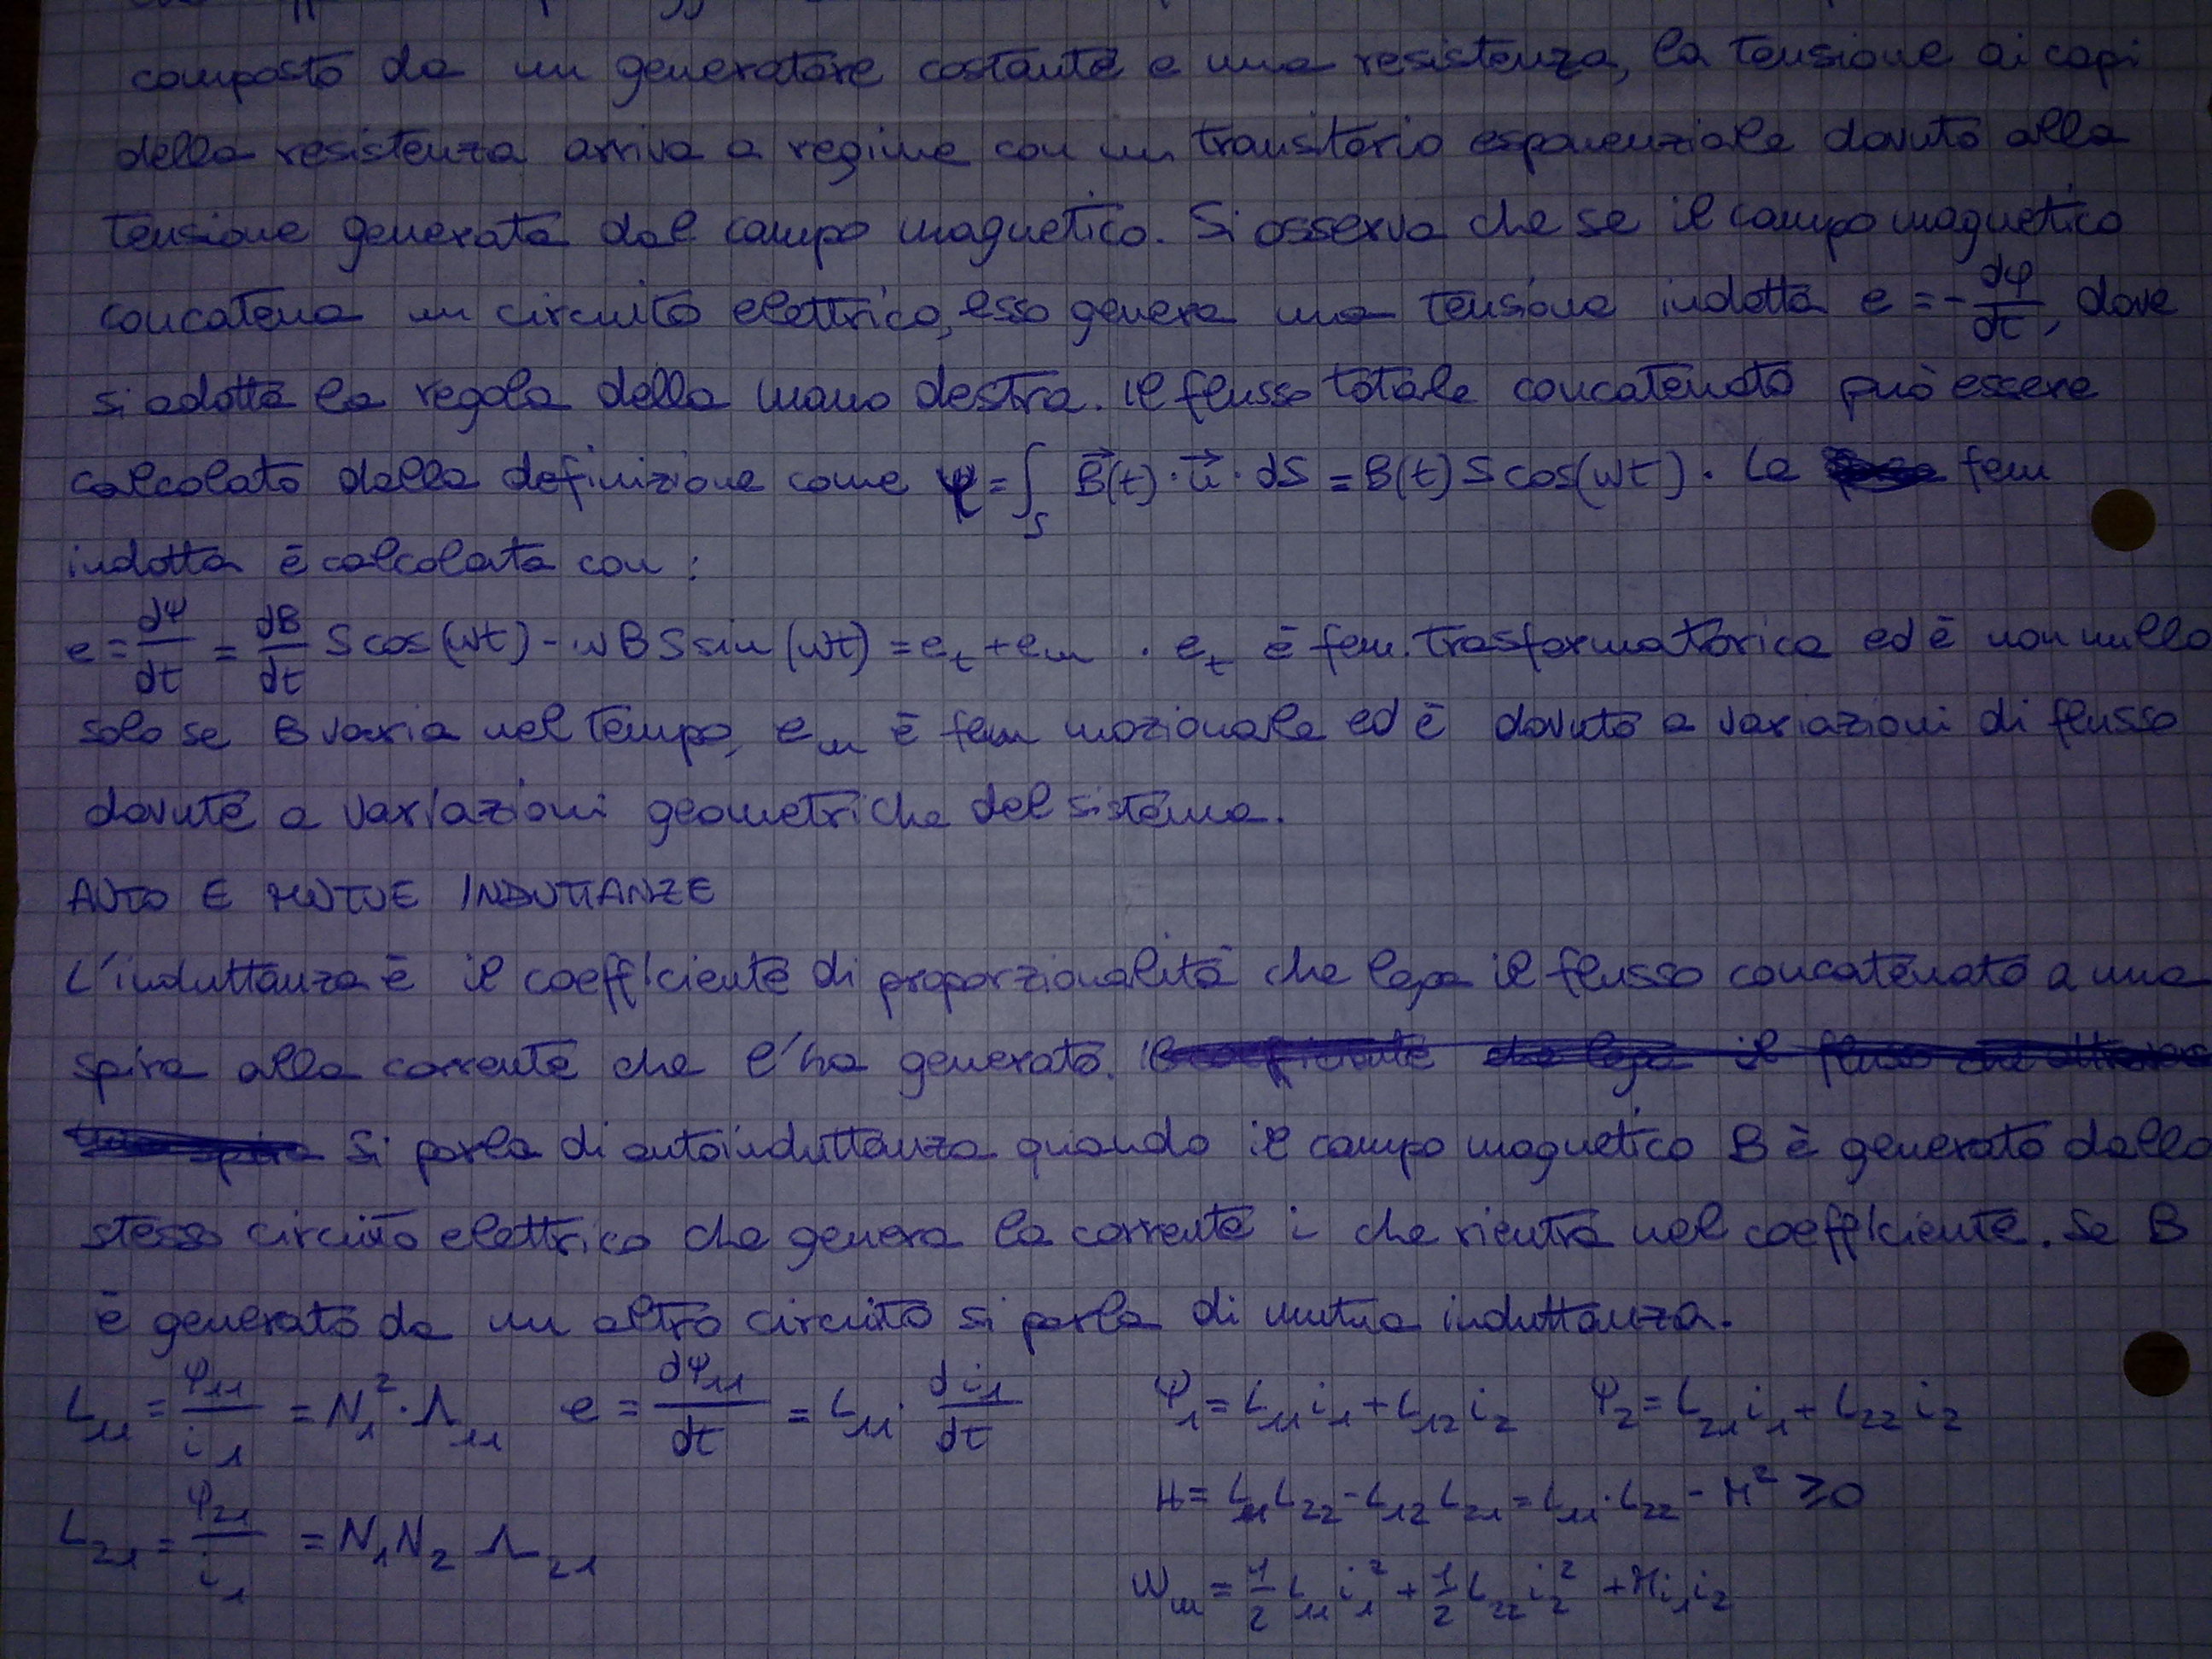 composto da un generatore costante e una resistenza, la tensione ai capi
della resistenza arriva a regime con un transitorio esponenziale dovuto alla
tensione generata dal campo magnetico. Si osserva che se il campo magnetico
concatena un circuito elettrico, esso genera una tensione indotta e = -dφ/dt, dove
si adotta la regola della mano destra. Il flusso totale concatenato può essere
calcolato dalla definizione come Ψ = ∫_S B⃗(t)·u⃗·dS = B(t) S cos(ωt). La fem
indotta è calcolata con:
e = dΨ/dt = dB/dt S cos(ωt) - ωBS sin(ωt) = e_t + e_m . e_t è fem. trasformatorica ed è non nulla
solo se B varia nel tempo, e_m è fem mozionale ed è dovuto a variazioni di flusso
dovute a variazioni geometriche del sistema.
AUTO E MUTUE INDUTTANZE
L'induttanza è il coefficiente di proporzionalità che lega il flusso concatenato a una
spira alla corrente che l'ha generato. Il coefficiente che lega il flusso che
spira Si parla di autoinduttanza quando il campo magnetico B è generato dallo
stesso circuito elettrico che genera la corrente i che rientra nel coefficiente. Se B
è generato da un altro circuito si parla di mutua induttanza.
L₁₁ = φ₁₁/i₁ = N₁²·Λ₁₁ e = dφ₁₁/dt = L₁₁·di₁/dt Ψ₁ = L₁₁i₁ + L₁₂i₂ Ψ₂ = L₂₁i₁ + L₂₂i₂
H = L₁₁L₂₂ - L₁₂L₂₁ = L₁₁·L₂₂ - M² ≥ 0
L₂₁ = φ₂₁/i₁ = N₁N₂ Λ₂₁
W_m = 1/2 L₁₁i₁² + 1/2 L₂₂i₂² + Mi₁i₂